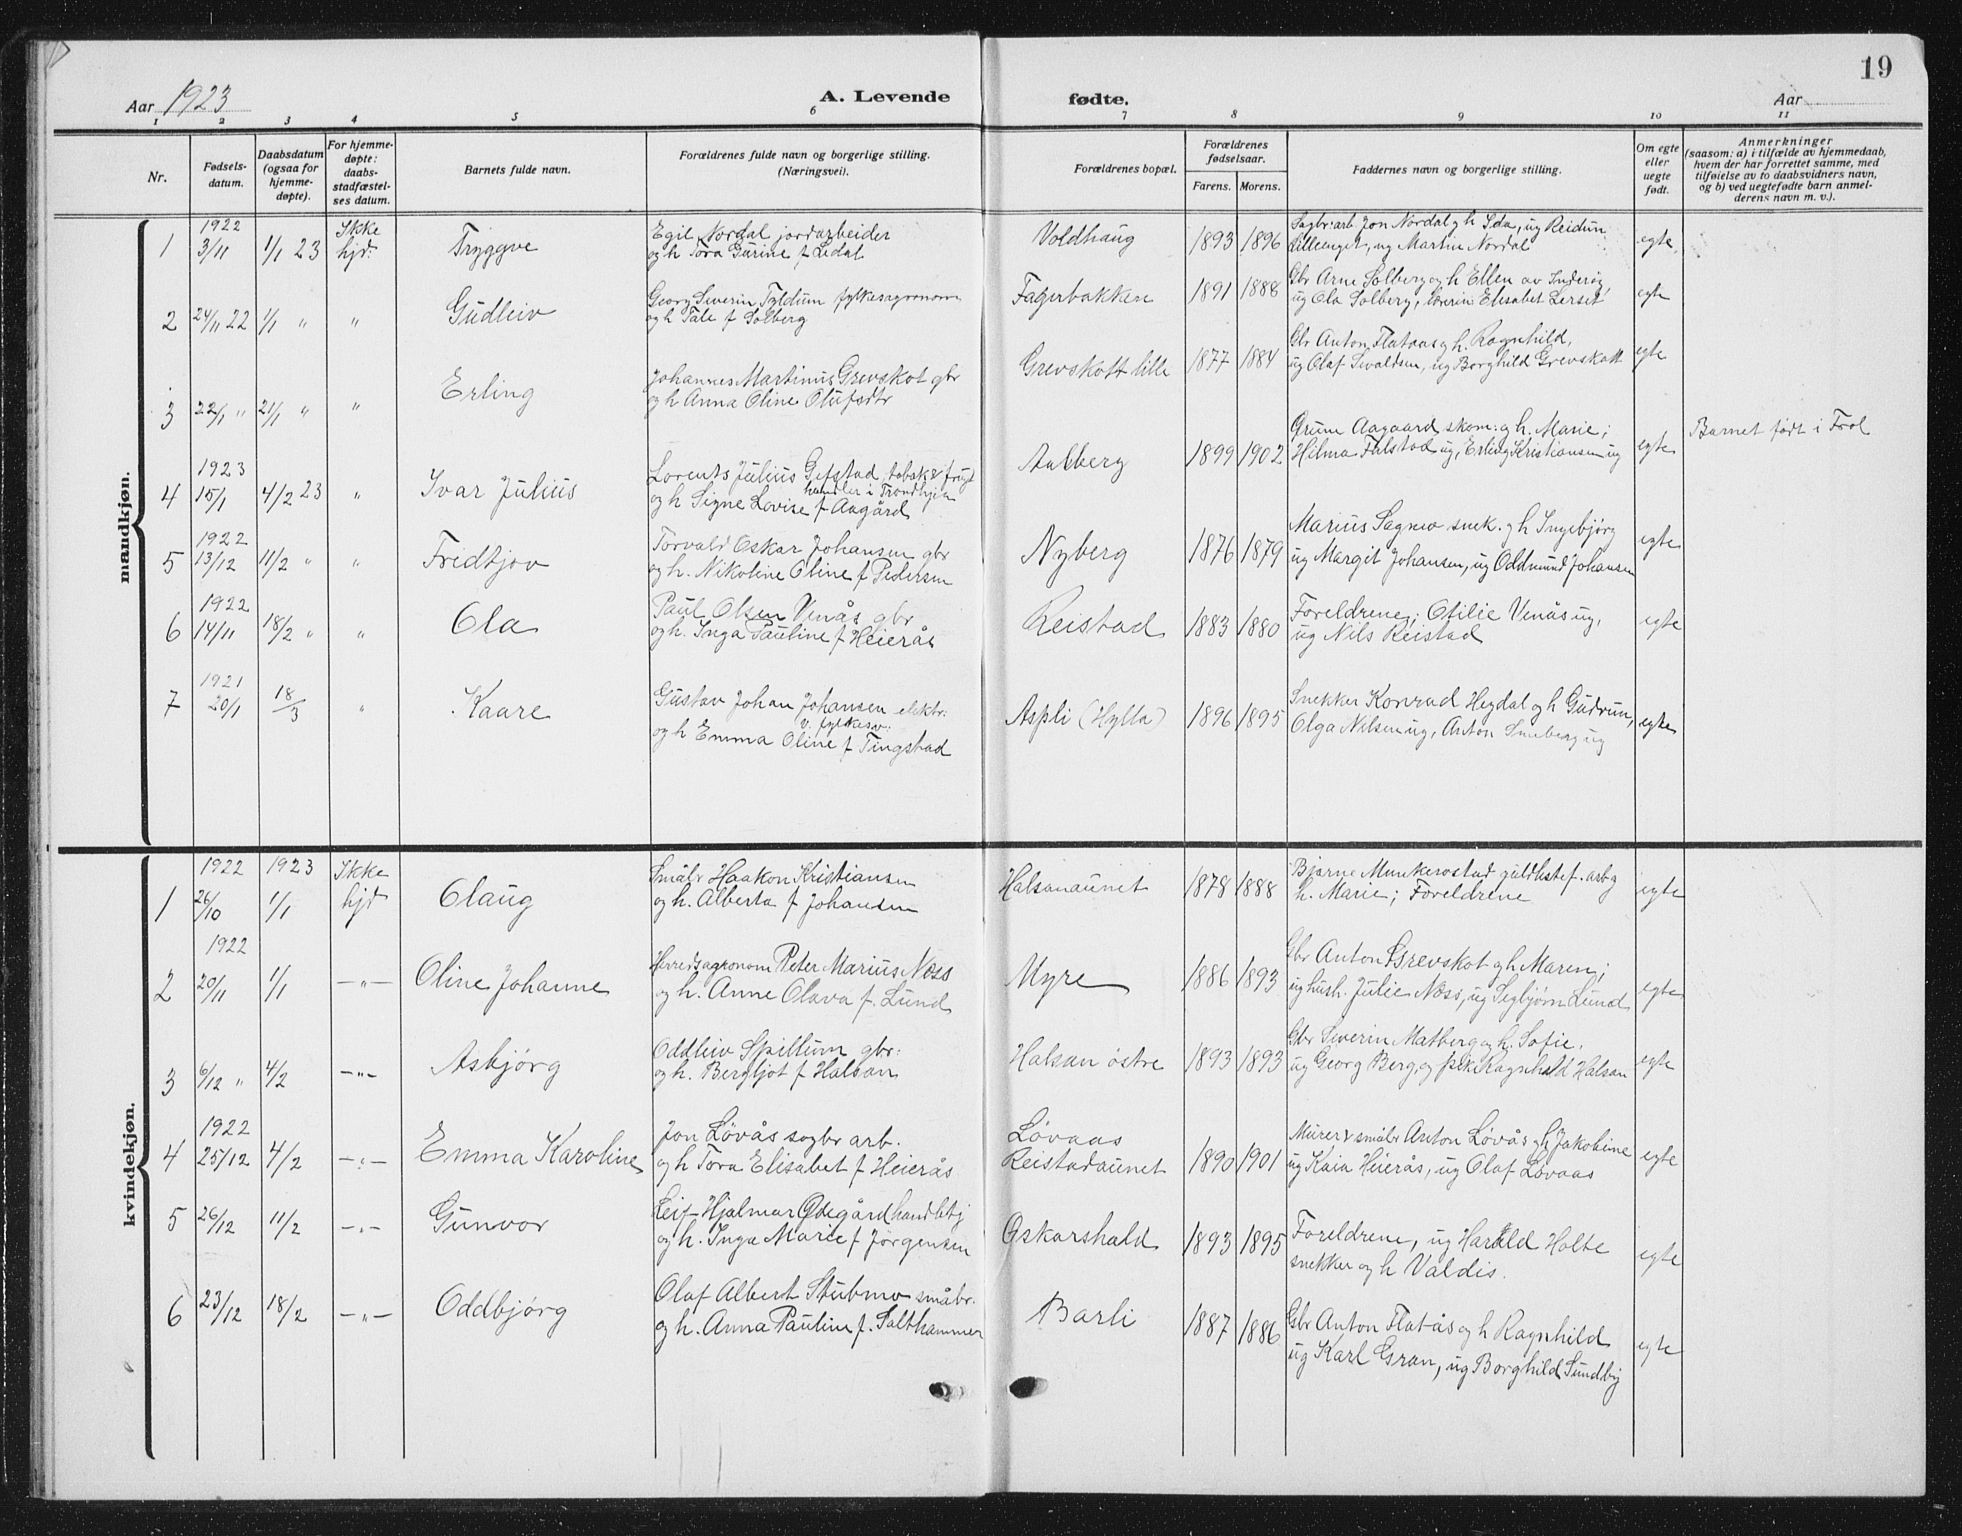 19
Aar 1923 A. Levende fødte. Aar
1 2 3 4 5 6 7 8 9 10 11
Nr.
Fødsels-
datum.
Daabsdatum
(ogsaa for
hjemme-
døpte).
For hjemme-
døpte:
daabs-
stadfæstel-
ses datum.
Barnets fulde navn.
Forældrenes fulde navn og borgerlige stilling.
(Næringsvei).
Forældrenes bopæl.
Forældrenes
fødselsaar.
Farens. Morens.
Faddernes navn og borgerlige stilling.
Om egte
eller
uegte
født.
Anmerkninger
(saasom: a) i tilfælde av hjemmedaab,
hvem der har forrettet samme, med
tilføielse av to daabsvidners navn,
og b) ved uegtefødte barn anmel-
derens navn m. v.).
mandkjøn.
1922 Ikke
1 3/11 1/1 23 hjd. Tryggve
Egil Nordal jordarbeider
og h Tora Gurine f Ledal
Voldhaug 1893 1896
Sagbr.arb Jon Nordal g h Ida, ug Reidun
Lilleenget, ug Martin Nordal
egte
2 24/11 22 1/1 " " Gudleiv
Georg Severin Tyldum fylkesagronom
og h Tale f Solberg
Fagerbakken 1891 1888
Gbr Arne Solberg og h Ellen av Inderøy
ug Ola Solberg, lærerin Elisabet Lerset
egte
3 22/1 " 21/1 " " Erling
Johannes Martinus Grevskot gbr
og h Anna Oline Olufsdtr
Grevskott lille 1877 1884
Gbr Anton Flataas g h. Ragnhild,
ug Olaf Sivaldsen, ug Borghild Grevskott
egte
1923
4 15/1 4/2 23 " Ivar Julius
Lorents Julius Gefstad, tobak & frugt
handler i Trondhjem
og h Signe Lovise f Aagård
Aalberg 1899 1902
Grum Aagaard skom: g h. Marie;
Hilma Falstad ug, Erling Kristiansen ug
egte
Barnet født i Frol
1922
5 13/12 11/2 " " Fredtjov
Torvald Oskar Johansen gbr
og h. Nikoline Oline f Pedersen
Nyberg 1876 1879
Marius Sagmo snek. g h Ingebjørg
ug Margit Johansen, ug Oddmund Johansen
egte
1922
6 14/11 18/2 " " Ola
Paul Olsen Venås gbr
og h. Inga Pauline f Heierås
Reistad 1883 1880
Foreldrene; Otilie Venås ug,
ug Nils Reistad
egte
1921
7 20/1 18/3 " Kaare
Gustav Johan Johansen elektr.
v. fylkesv.
og h Emma Oline f Tingstad
Aspli (Hylla) 1896 1895
Snekker Konrad Heydal og h Gudrun,
Olga Nilsen ug, Anton ug
egte
kvindekjøn.
1922 1923 Ikke
1 26/10 1/1 hjd Olaug
Småbr Haakon Kristiansen
og h. Alberta f Johansen
Halsanaunet 1878 1888
Bjarne Munkerostad guldlistef. arb g
h. Marie; Foreldrene
egte
1922
2 20/11 1/1 -"- Oline Johanne
Herredsagronom Peter Marius Næss
og h. Anne Olava f. Lund
Myre 1886 1893
Gbr Anton Grevskot g h Maren;
ug hush. Julie Næss, ug Segbjørn Lund
egte
3 6/12 " 4/2 -"- Asbjørg
Oddleiv Spillum gbr:
og h. Bergljot f Halsan
Halsan østre 1893 1893
Gbr Severin Matberg og h. Sofie,
ug Georg Berg, g pike Ragnhild Halsan
egte
1922
4 25/12 4/2 -"- Emma Karoline
Jon Løvås sagbr arb.
og h Tora Elisabet f Heierås
Løvaas
Reistadaunet 1890 1901
Murer & småbr Anton Løvås g h Jakobine
ug Kaia Heierås, ug Olaf Lovaas
egte
5 26/12 11/2 -"- Gunvor
Leif Hjalmar Ødegård handlbtj
og h. Inga Marie f Jørgensen
Oskarshald 1893 1895
Foreldrene, ug Harald Holte
snekker og h Valdis.
egte
6 23/12 18/2 -"- Oddbjørg
Olaf Albert Stubmo småbr.
og h. Anna Pauline f. Salthammer
Barli 1887 1886
Gbr Anton Flatås og h Ragnhild
ug Karl Gran, ug Borghild Sundby
egte